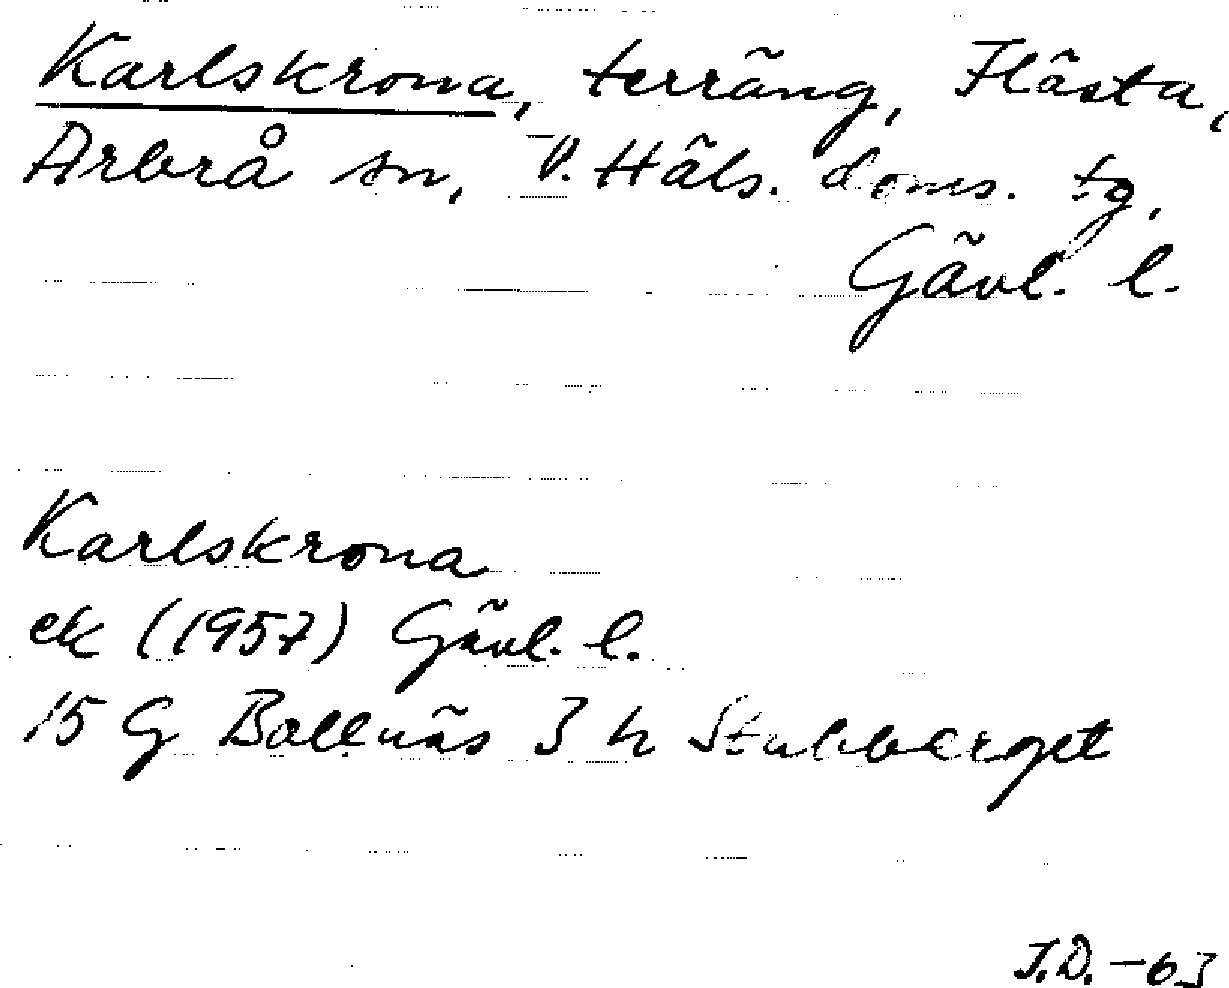 Karlskrona, terräng, Flästa,
Arbrå sn, V. Häls. doms. tg,
Gävl. l.
Karlskrona
ek (1957) Gävl. l.
15 G Bollnäs 3 h Stubberget
J.D. -63